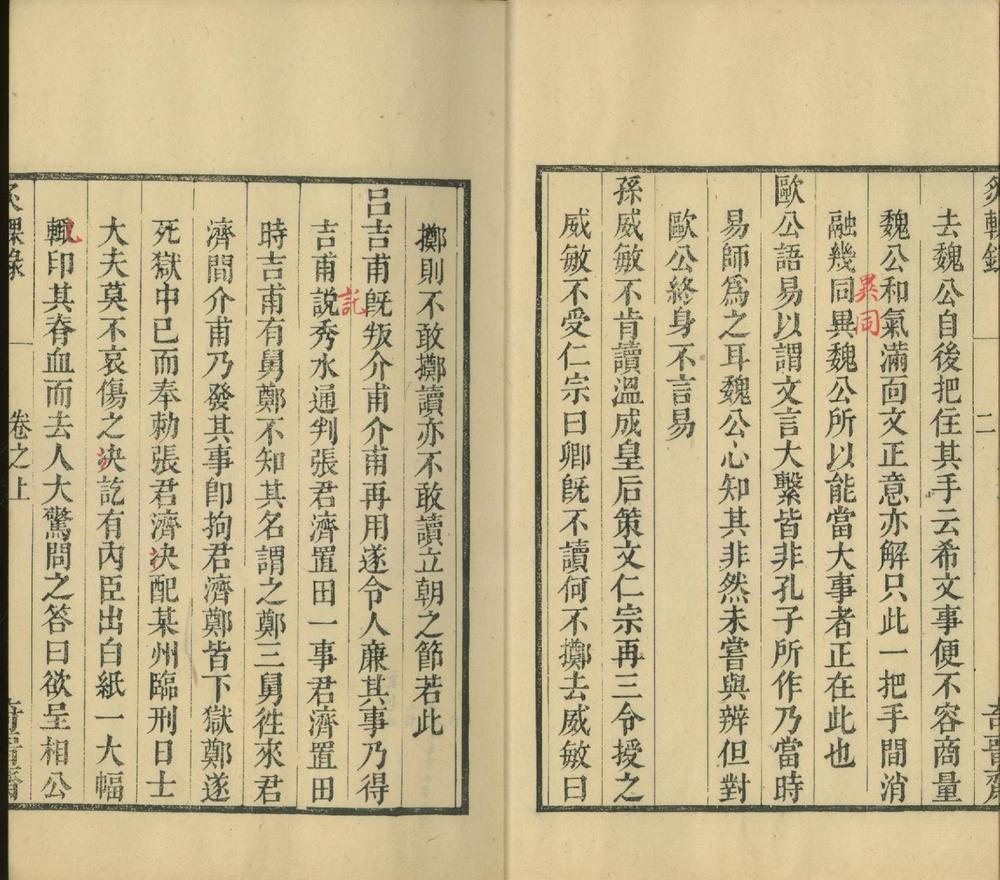 炙輠錄
二
去魏公自後把住其手云希文事便不容商量
魏公和氣滿面文正意亦解只此一把手間消
融幾同異魏公所以能當大事者正在此也
異同
歐公語易以謂文言大繫皆非孔子所作乃當時
易師爲之耳魏公心知其非然未嘗與辨但對
歐公終身不言易
孫威敏不肯讀溫成皇后策文仁宗再三令授之
威敏不受仁宗曰卿旣不讀何不擲去威敏曰
擲則不敢擲讀亦不敢讀立朝之節若此
呂吉甫旣叛介甫介甫再用遂令人廉其事乃得
吉甫説秀水通判張君濟置田一事君濟置田
託
時吉甫有舅鄭不知其名謂之鄭三舅徃來君
濟間介甫乃發其事卽拘君濟鄭皆下獄鄭遂
死獄中已而奉勅張君濟决配某州臨刑日士
大夫莫不哀傷之决訖有內臣出白紙一大幅
輒印其脊血而去人大驚問之答曰欲呈相公
炙輠錄
卷之上
奇晉齋